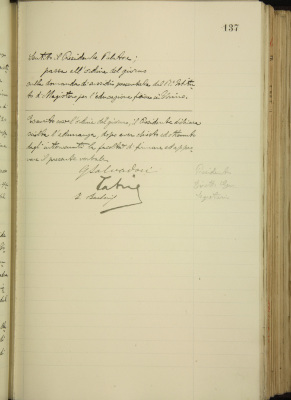 137
Sentito il Presidente Relatore;
passa all'ordine del giorno
sulla domanda di sussidio presentata dal R.° Istitu-
to di Magistero per l'educazione fisica in Torino.
Esaurito così l'ordine del giorno, il Presidente dichiara
sciolta l'adunanza, dopo aver chiesto ed ottenuto
dagli intervenuti la facoltà di firmare ed appro-
vare il presente verbale.
G Salvadori
Presidente